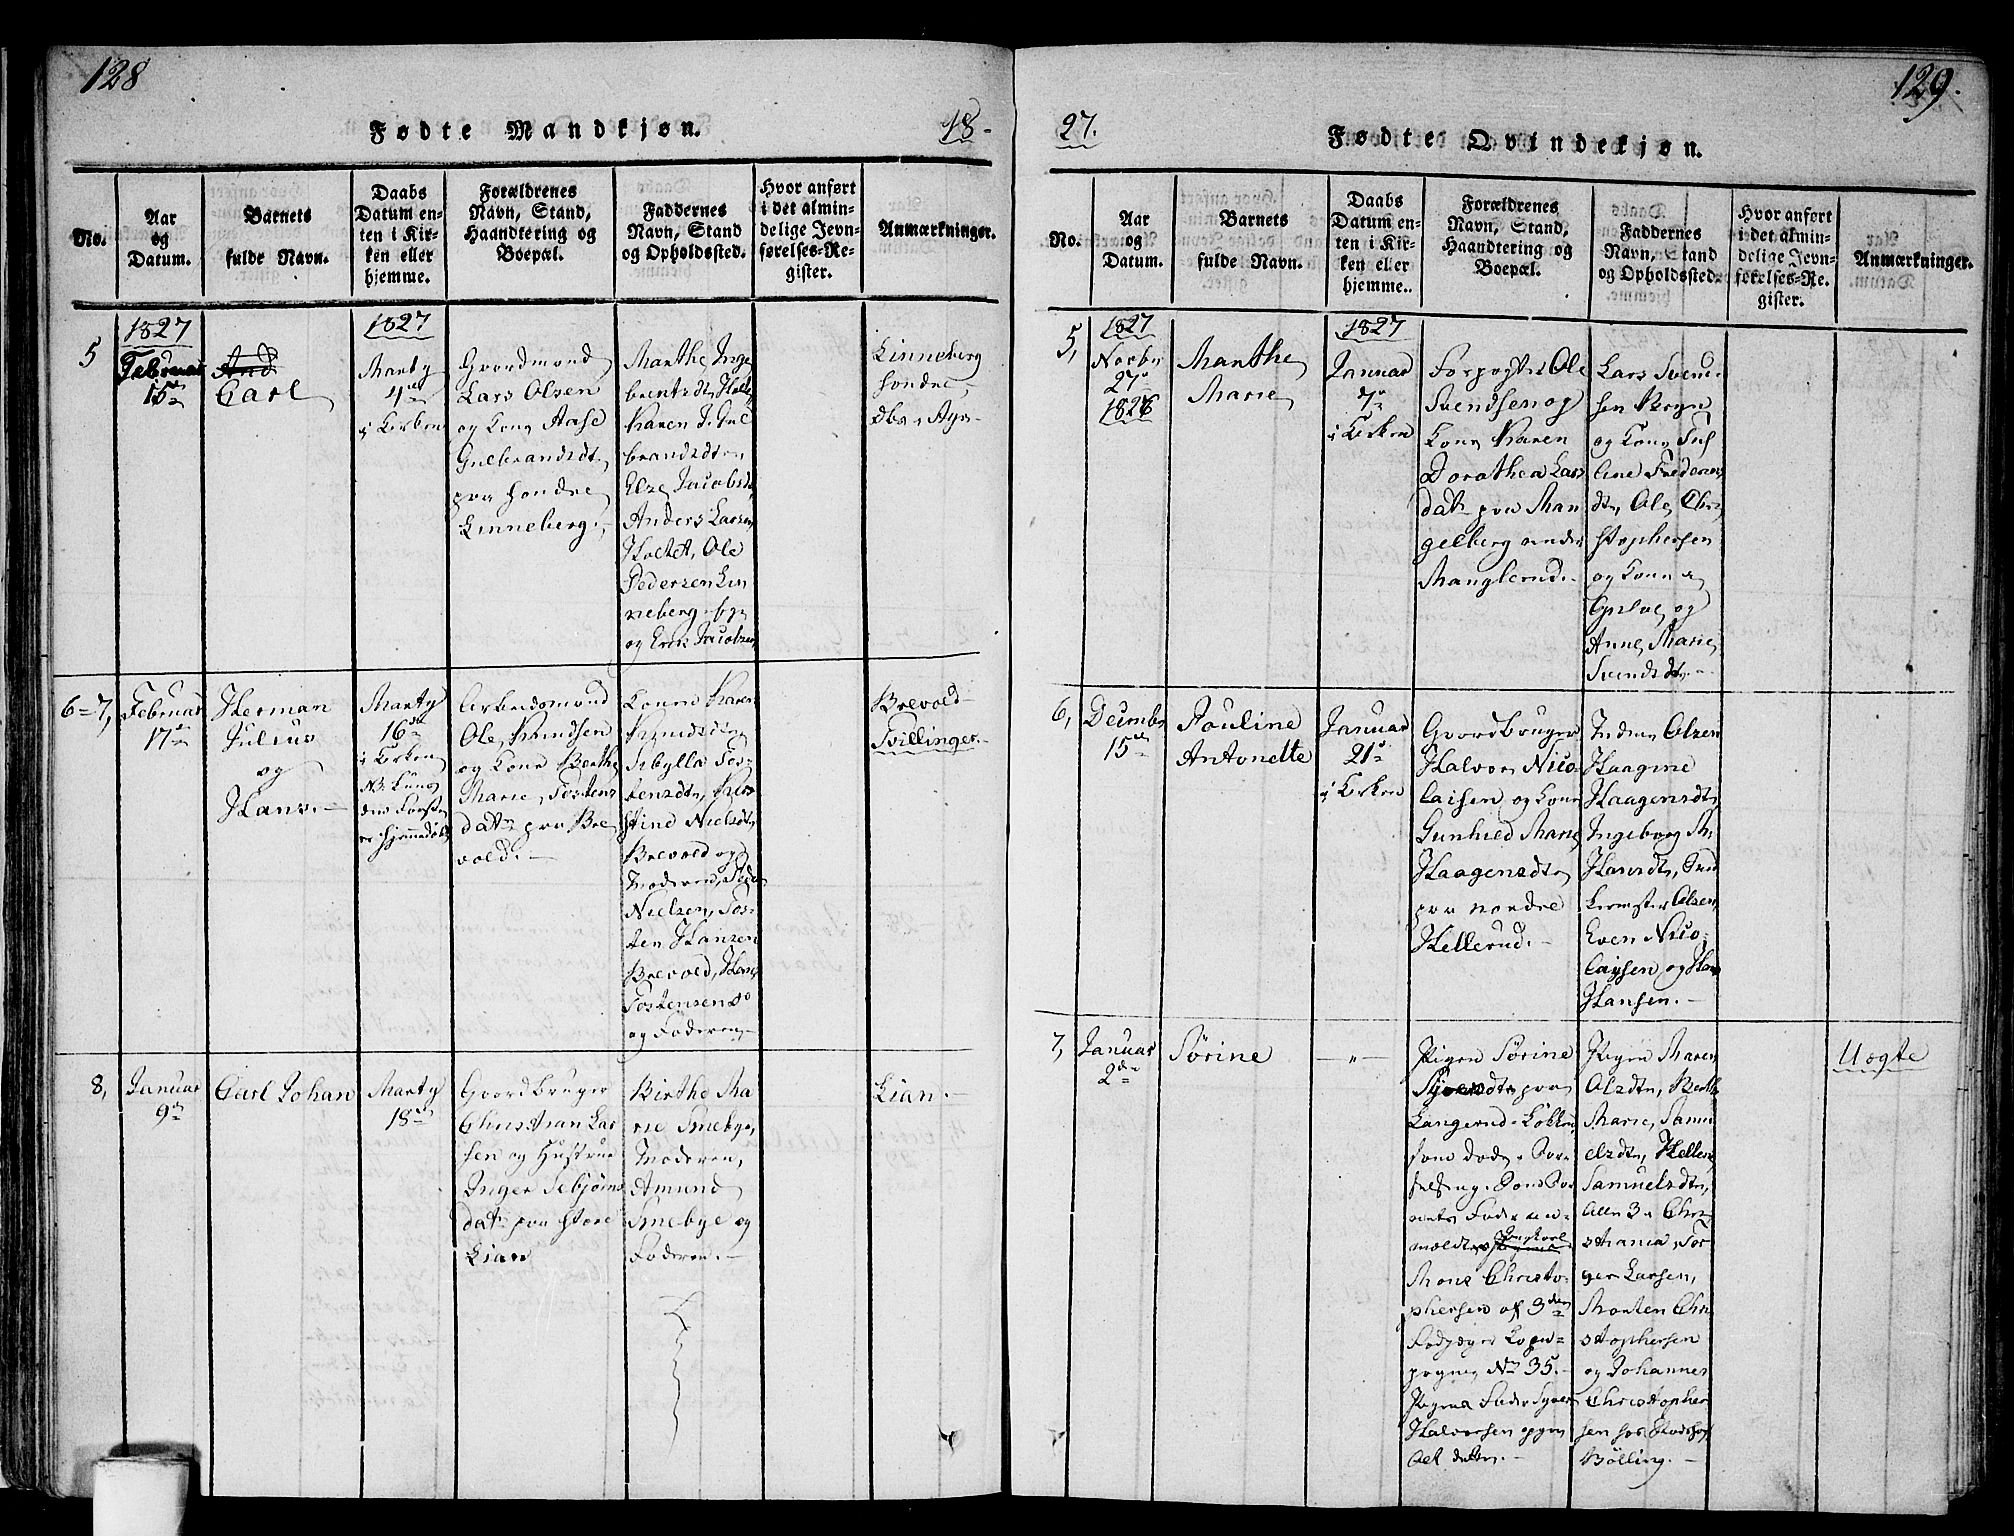 128
Fødte Mandkjøn.
18-
No.
Aar
og
Datum.
Barnets
fulde Navn.
Daabs
Datum en-
ten i Kir-
ken eller
hjemme.
Forældrenes
Navn, Stand,
Haandtering og
Boepæl.
Faddernes
Navn, Stand
og Opholdssted.
Hvor anført
i det almin-
delige Jevn-
førelses-Re-
gister.
Anmærkninger.
5
1827
Februar
15de
And
Carl
1827
Marty
4de
i Kirken
Gaardmand
Lars Olsen
og Kone Aase
Gulbrandsdtr
paa søndre
Linneberg.
Marthe Inge
brentsdtr
Karen J. Gul
brandsdtr
Elze Jacobsdtr
Anders Larsen
Ole
Pedersen Lin
neberg
og Erik Jacobsen
Linneberg
søndre
6-7,
Februar
17de
Herman
Julius
og
Hans.-
Marty
16de
i Kirken
NB.
den første
er hjemmedøbt
Arbeidsmand
Ole Knudsen
og Kone Berthe
Marie Tostens
datr paa Bre
vold.-
Konne Karen
Knudsdtr
Sibylla Tos-
tensdtr, Kirs
stine Nielsdtr
Brevold og
Moderen, Peder
Nielsen, Tos-
ten Hansen
Brevold, Hans
Tostensen do
og Faderen.-
Brevold-
Tvillinger.-
8,
Januar
9de
Carl Johan
Marty
18de
Gaardbruger
Christian Lar
sen og Hustrue
Inger Sebjørns
datr paa store
Lian
Birthe Ma
rie Smebye,
Moderen,
Amund
Smebye og
Faderen.-
Lian.-
129.
27.
Fødte Qvindekjøn.
No.
Aar
og
Datum.
Barnets
fulde Navn.
Daabs
Datum en-
ten i Kir-
ken eller
hjemme.
Forældrenes
Navn, Stand,
Haandtering og
Boepæl.
Faddernes
Navn, Stand
og Opholdssted.
Hvor anført
i det almin-
delige Jevn-
førelses-Re-
gister.
Anmærkninger.
5,
1827
Novbr
27de
1826
Marthe
Marie
1827
Januar
7de
i Kirken
Forpagter Ole
Svendsen og
Kone Karen
Dorothea Lars
datr paa Man
gelberg under
Manglerud.-
Lars Svend-
sen Bryn
og Kone
Ane Frederics
dtr, Ole Chri
stophersen
og Kone
og
Anne Marie
Svendsdtr.-
6,
Decembr
15de
Pouline
Antonette
Januar
21de
i Kirken
Gaardbruger
Halvor Nico-
laisen og Kone
Gunhild Marie
Haagensdtr
paa nordre
Hellerud.-
Olsen
Haagine
Haagensdtr
Ingeborg M.
Hansdtr,
Olsen,
Even Nico-
laysen og Hans
Hansen.-
7,
Januar
2den
Sørine
"
Pigen Sørine
Syversdtr paa
Langerud Løkken
som døde i Bar
selseng.
nets Fader an-
meldtes Ungkarl
Mons Christo-
phersen af 3die
Fodjæger Kom-
pagnie No 35.-
Pigens Fader Syver
Halvorsen opgav
det
Pigen Maren
Olsdtr, Berthe
Marie Samu
elsdtr, Hellene
Samuelsdtr,
alle 3 i Chri
stiania, Tor
ger Larsen,
Morten Chri
stophersen
og Johannes
Christopher
sen hos
Bølling.-
Uægte